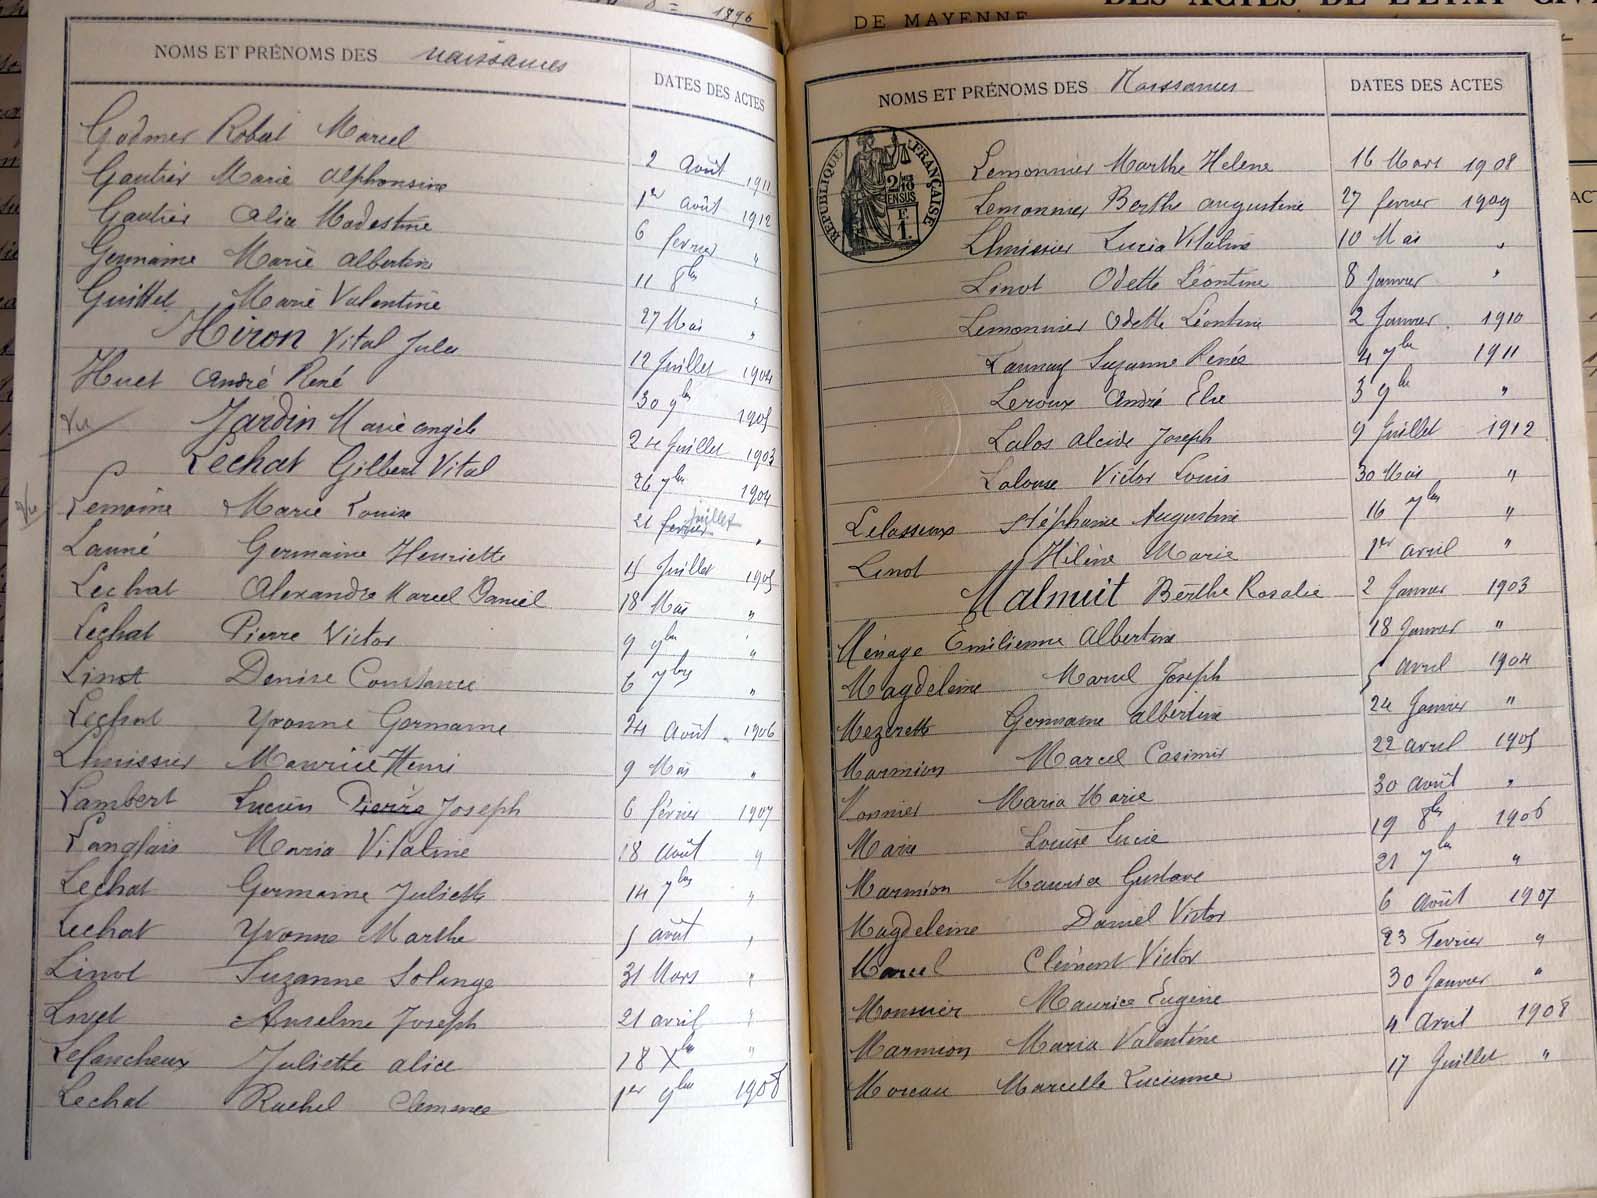 1896
DE MAYENNE
DES ACTES DE L'ÉTAT CIV
NOMS ET PRÉNOMS DES naissances DATES DES ACTES
Godmer Robert Marcel 2 Août 1911
Gautier Marie Alphonsine 1er Août 1912
Gautier Alice Modestine 6 février "
Germaine Marie Albertine 11 8bre "
Guittet Marie Valentine 27 Mai "
Hiron Vital Jules 12 Juillet 1904
Huet André René 30 9bre 1905
Vu Jardin Marie Angèle 24 Juillet 1903
Lechat Gilbert Vital 26 7bre 1904
Vu Lemoine Marie Louise 21 février juillet "
Launé Germaine Henriette 15 Juillet 1905
Lechat Alexandre Marcel Daniel 18 Mai "
Lechat Pierre Victor 9 9bre "
Linot Denise Constance 6 7bre "
Lechat Yvonne Germaine 24 Août 1906
Lhuissier Maurice Henri 9 Mai "
Lambert Lucien Pierre Joseph 6 février 1907
Langlais Maria Vitaline 18 Août "
Lechat Germaine Juliette 14 7bre "
Lechat Yvonne Marthe 5 août "
Linot Suzanne Solange 31 Mars "
Livet Anselme Joseph 21 avril "
Lefaucheux Juliette Alice 18 Xbre "
Lechat Rachel Clemence 1er 9bre 1908
NOMS ET PRÉNOMS DES Naissances DATES DES ACTES
RÉPUBLIQUE FRANÇAISE
2/10 EN SUS
F
1.
Lemonnier Marthe Helene 16 Mars 1908
Lemonnier Berthe Augustine 27 fevrier 1909
Lhuissier Lucia Vitaline 10 Mai "
Linot Odette Léontine 8 Janvier "
Lemonnier Odette Léontine 2 Janvier 1910
Launay Suzanne Renée 4 7bre 1911
Leroux André Elie 3 9bre "
Lalos Alcide Joseph 9 Juillet 1912
Lalouse Victor Louis 30 Mai "
Lelasseux Stéphanie Augustine 16 7bre "
Linot Hélène Marie 1er avril "
Malnuit Berthe Rosalie 2 Janvier 1903
Ménage Emilienne Albertine 18 Janvier "
Magdeleine Marcel Joseph 5 avril 1904
Mezerette Germaine Albertine 24 Janvier "
Marmion Marcel Casimir 22 avril 1905
Monnier Maria Marie 30 Août "
Marie Louise Lucie 19 8bre 1906
Marmion Maurice Gustave 21 7bre "
Magdeleine Daniel Victor 6 Août 1907
Marcel Clément Victor 23 Fevrier "
Monsuier Maurice Eugène 30 Janvier "
Marmion Maria Valentine 4 Avril 1908
Moreau Marcelle Lucienne 17 Juillet "